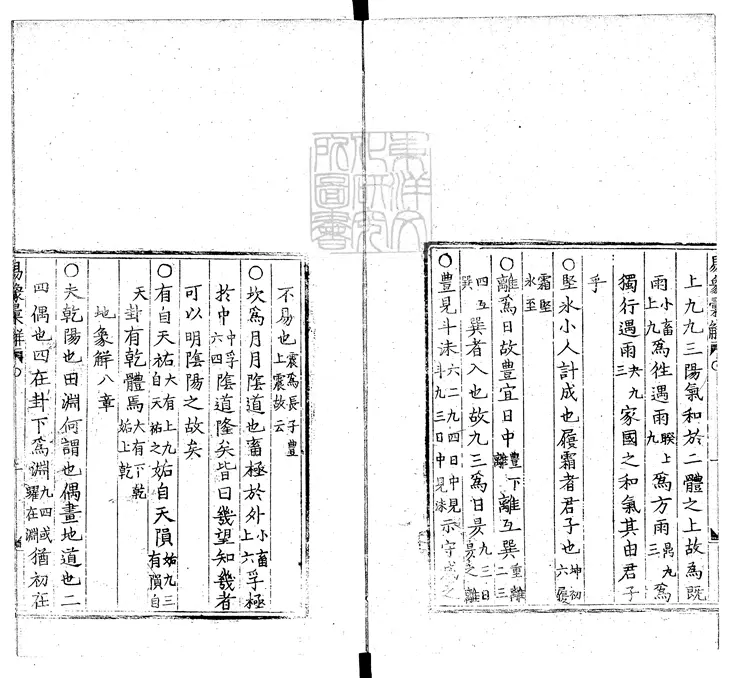 東洋文化研究所圖書
易象彙解
上九九三陽氣和於二體之上故爲既
雨小畜上九爲徃遇雨睽上九爲方雨鼎九三爲
獨行遇雨夬九三家國之和氣其由君子
乎
○堅氷小人計成也履霜者君子也坤初六履
霜堅氷至
○離爲日故豐宜日中豐下離離互巽重離二三
四互巽巽者入也故九三爲日昃九三日昃之離
○豐見斗沬六二九四日中見斗九三日中見沬示守盛之
不易也震爲長子豐上震故云
○坎爲月月陰道也畜極於外小畜上六孚極
於中中孚六四陰道隆矣皆曰幾望知幾者
可以明陰陽之故矣
○有自天祐大有上九自天祐之姤自天隕姤九三有隕自
天卦有乾體焉大有下乾姤上乾
地象解八章
○夫乾陽也田淵何謂也偶畫地道也二
四偶也四在卦下爲淵九四或躍在淵猶初在
易象彙解